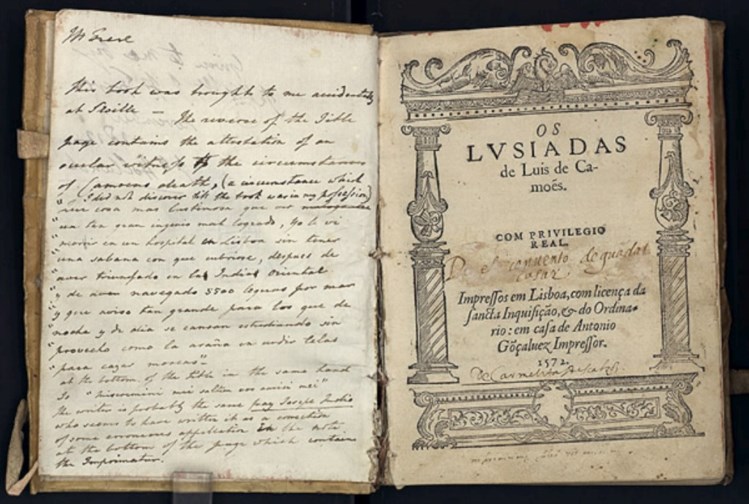 Mr Frere
This book was brought to me accidentally
at Seville — The reverse of the Title
page contains the attestation of an
ocular witness to the circumstances
of Camoens death, (a circumstance which
I did not discover till the book was in my possession)
"que cosa mas lastimosa que ver
"un tan gran ingenio mal logrado, yo le vi
"morir en un hospital en Lisboa sin tener
"una sabana con que cubrirse, despues de
"aver triunfado en la India Oriental
"y de aver navegado 5500 leguas por mar
"y que aviso tan grande para los que de
"noche y de dia se cansan estudiando sin
"provecho como la araña en urdir telas
"para cazar moscas"
at the bottom of the Title in the same hand
is "miseremini mei saltem vos amici mei"
the writer is probably the same Fray Josepe Indio
who seems to have written it as a correction
of some erroneous application in the note
at the bottom of the page which contains
the Imprimatur.
OS
LVSIADAS
de Luis de Ca-
moẽs.
COM PRIVILEGIO
REAL.
De el convento de guadal
casar
Impressos em Lisboa, com licença da
sancta Inquisição, & do Ordina-
rio: em casa de Antonio
Gõçaluez Impressor.
1572.